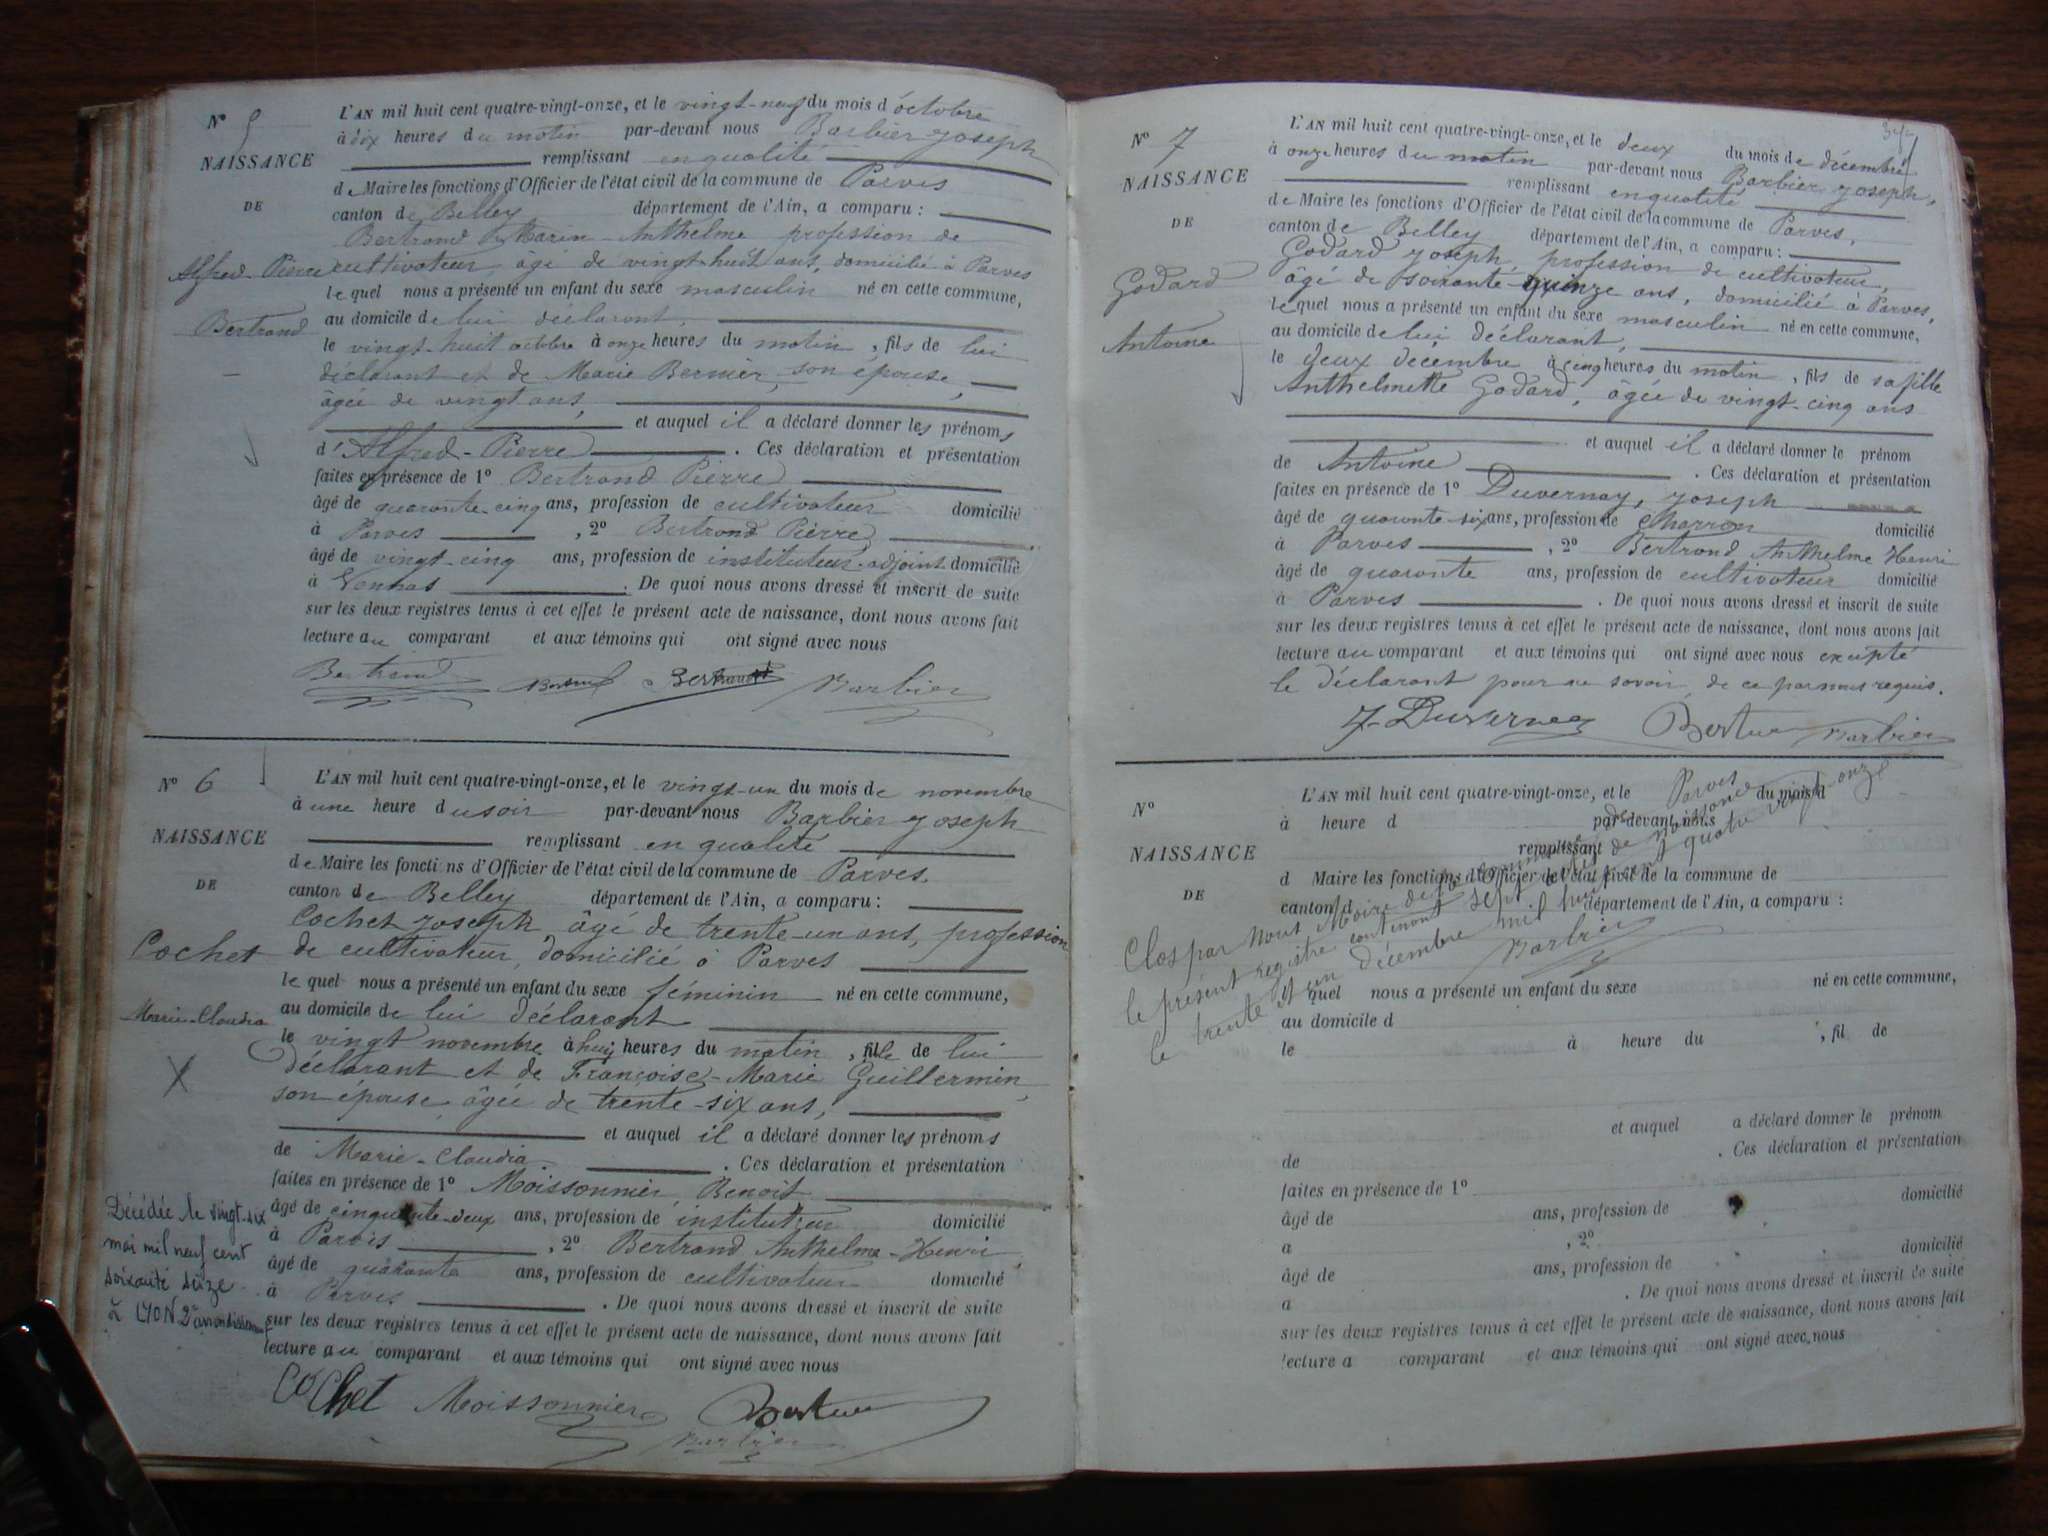 N° 5
NAISSANCE
DE
Alfred-Pierre
Bertrand
L'AN mil huit cent quatre-vingt-onze, et le vingt-neuf du mois d'octobre
à dix heures du matin par-devant nous Barbier Joseph
remplissant en qualité
de Maire les fonctions d'Officier de l'état civil de la commune de Parves
canton de Belley département de l'Ain, a comparu :
Bertrand Marin Anthelme profession de
cultivateur, âgé de vingt-huit ans, domicilié à Parves
le quel nous a présenté un enfant du sexe masculin né en cette commune,
au domicile de lui déclarant,
le vingt-huit octobre à onze heures du matin, fils de lui
déclarant et de Marie Bernier, son épouse,
âgée de vingt ans,
et auquel il a déclaré donner les prénoms
d'Alfred-Pierre. Ces déclaration et présentation
faites en présence de 1° Bertrand Pierre
âgé de quarante-cinq ans, profession de cultivateur domicilié
à Parves, 2° Bertrand Pierre
âgé de vingt-cinq ans, profession de instituteur-adjoint domicilié
à. De quoi nous avons dressé et inscrit de suite
sur les deux registres tenus à cet effet le présent acte de naissance, dont nous avons fait
lecture au comparant et aux témoins qui ont signé avec nous
Bertrand Bertrand Bertrand Barbier
N° 6
NAISSANCE
DE
Cochet
Marie-Claudia
X
L'AN mil huit cent quatre-vingt-onze, et le vingt-un du mois de novembre
à une heure du soir par-devant nous Barbier Joseph
remplissant en qualité
de Maire les fonctions d'Officier de l'état civil de la commune de Parves.
canton de Belley département de l'Ain, a comparu :
Cochet Joseph, âgé de trente-un ans, profession
de cultivateur, domicilié à Parves
le quel nous a présenté un enfant du sexe féminin né en cette commune,
au domicile de lui déclarant
le vingt novembre à huit heures du matin, fille de lui
déclarant et de Françoise-Marie Guillermin,
son épouse, âgée de trente-six ans,
et auquel il a déclaré donner les prénoms
de Marie-Claudia. Ces déclaration et présentation
faites en présence de 1° Moissonnier Benoit
âgé de cinquante-deux ans, profession de instituteur domicilié
à Parves, 2° Bertrand Anthelme-Henri,
âgé de quarante ans, profession de cultivateur domicilié
à Parves. De quoi nous avons dressé et inscrit de suite
sur les deux registres tenus à cet effet le présent acte de naissance, dont nous avons fait
lecture au comparant et aux témoins qui ont signé avec nous
Décédée le vingt-six
mai mil neuf cent
soixante seize
à LYON 2e arrondissement
Cochet Moissonnier Bertrand
Barbier
N° 7
NAISSANCE
DE
Godard
Antoine
L'AN mil huit cent quatre-vingt-onze, et le deux du mois de décembre
à onze heures du matin par-devant nous Barbier Joseph,
remplissant en qualité
de Maire les fonctions d'Officier de l'état civil de la commune de Parves,
canton de Belley département de l'Ain, a comparu :
Godard Joseph, profession de cultivateur,
âgé de soixante-quinze ans, domicilié à Parves,
le quel nous a présenté un enfant du sexe masculin né en cette commune,
au domicile de lui déclarant,
le deux décembre à cinq heures du matin, fils de sa fille
Anthelmette Godard, âgée de vingt-cinq ans
et auquel il a déclaré donner le prénom
de Antoine. Ces déclaration et présentation
faites en présence de 1° Duvernay, Joseph
âgé de quarante-six ans, profession de charron domicilié
à Parves, 2° Bertrand Anthelme Henri
âgé de quarante ans, profession de cultivateur domicilié
à Parves. De quoi nous avons dressé et inscrit de suite
sur les deux registres tenus à cet effet le présent acte de naissance, dont nous avons fait
lecture au comparant et aux témoins qui ont signé avec nous excepté
le déclarant pour ne savoir, de ce par nous requis.
J. Duvernay Bertrand Barbier
N°
NAISSANCE
DE
L'AN mil huit cent quatre-vingt-onze, et le du mois d
à heure d par-devant nous
remplissant
d Maire les fonctions d'Officier de l'état civil de la commune de
canton d département de l'Ain, a comparu :
Clos par Nous Maire de la commune de Parves
le présent registre contenant sept actes de naissance
le trente et un décembre mil huit cent quatre vingt onze
Barbier
le quel nous a présenté un enfant du sexe né en cette commune,
au domicile d
le à heure du, fil de
et auquel a déclaré donner le prénom
de. Ces déclaration et présentation
faites en présence de 1°
âgé de ans, profession de domicilié
à, 2°
âgé de ans, profession de domicilié
à. De quoi nous avons dressé et inscrit de suite
sur les deux registres tenus à cet effet le présent acte de naissance, dont nous avons fait
lecture a comparant et aux témoins qui ont signé avec nous